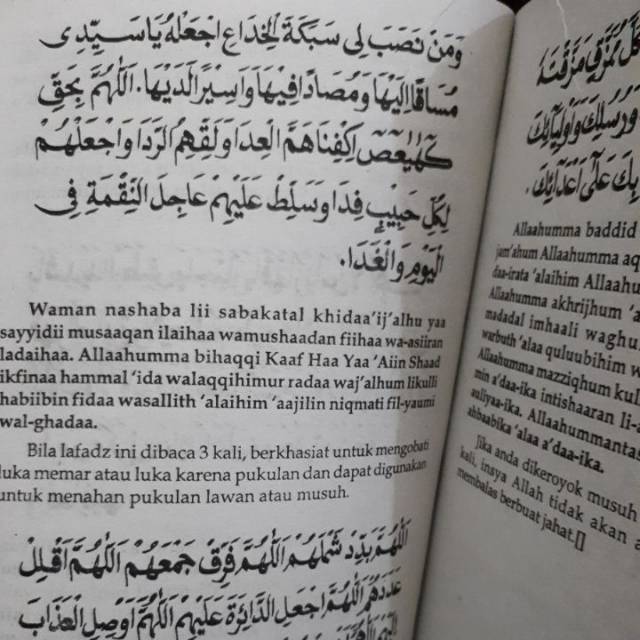 وَمَنْ نَصَبَ لِى سَبَكَةَ الْخِدَاعِ اجْعَلْهُ يَاسَيِّدِى
مُسَاقًا اِلَيْهَا وَمُصَادًا فِيْهَا وَاَسِيْرًا لَدَيْهَا. اَللّٰهُمَّ بِحَقِّ
كٓهٰيٰعٓصٓ اِكْفِنَا هَمَّ الْعِدَا وَلَقِّهِمُ الرَّدَا وَاجْعَلْهُمْ
لِكُلِّ حَبِيْبٍ فِدَا وَسَلِّطْ عَلَيْهِمْ عَاجِلَ النِّقْمَةِ فِى
الْيَوْمِ وَالْغَدَا.
Waman nashaba lii sabakatal khidaa'ij'alhu yaa
sayyidii musaaqan ilaihaa wamushaadan fiihaa wa-asiiran
ladaihaa. Allaahumma bihaqqi Kaaf Haa Yaa 'Aiin Shaad
ikfinaa hammal 'ida walaqqihimur radaa waj'alhum likulli
habiibin fidaa wasallith 'alaihim 'aajilin niqmati fil-yaumi
wal-ghadaa.
Bila lafadz ini dibaca 3 kali, berkhasiat untuk mengobati
luka memar atau luka karena pukulan dan dapat digunakan
untuk menahan pukulan lawan atau musuh.
اَللّٰهُمَّ بَدِّدْ شَمْلَهُمْ اَللّٰهُمَّ فَرِّقْ جَمْعَهُمْ اَللّٰهُمَّ اَقْلِلْ
عَدَدَهُمْ اَللّٰهُمَّ اجْعَلِ الدَّائِرَةَ عَلَيْهِمْ اَللّٰهُمَّ اَوْصِلِ الْعَذَابَ
كُلَّ مُمَزَّقٍ مَزَّقْتَهُ
وَرُسُلِكَ وَاَوْلِيَآئِكَ
بِكَ عَلَى اَعْدَآئِكَ.
Allaahumma baddid
jam'ahum Allaahumma aq
daa-irata 'alaihim Allaahu
Allaahumma akhrijhum 'a
madadal imhaali waghu
warbuth 'alaa quluubihim w
Allaahumma mazziqhum kul
min a'daa-ika intishaaran li-a
auliyaa-ika. Allaahummantas
ahbaabika 'alaa a'daa-ika.
Jika anda dikeroyok musuh
kali, insya Allah tidak akan a
membalas berbuat jahat.[]